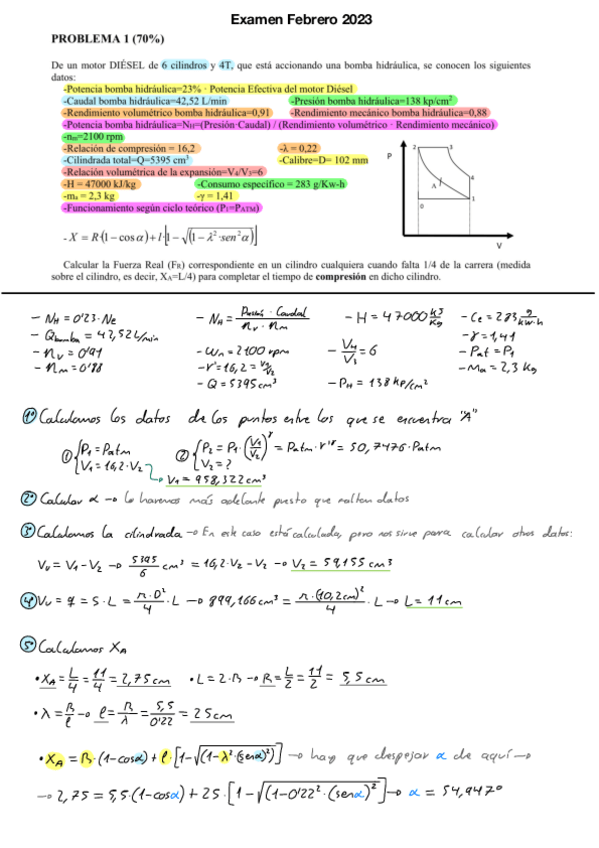 Examen Febrero 2023
PROBLEMA 1 (70%)
De un motor DIÉSEL de 6 cilindros y 4T, que está accionando una bomba hidráulica, se conocen los siguientes
datos:
-Potencia bomba hidráulica=23% · Potencia Efectiva del motor Diésel
-Caudal bomba hidráulica=42,52 L/min -Presión bomba hidráulica=138 kp/cm²
-Rendimiento volumétrico bomba hidráulica=0,91 -Rendimiento mecánico bomba hidráulica=0,88
-Potencia bomba hidráulica=N_H=(Presión·Caudal) / (Rendimiento volumétrico · Rendimiento mecánico)
-n_m=2100 rpm
-Relación de compresión = 16,2 -λ = 0,22
-Cilindrada total=Q=5395 cm³ -Calibre=D= 102 mm
-Relación volumétrica de la expansión=V₄/V₃=6
-H = 47000 kJ/kg -Consumo específico = 283 g/Kw-h
-mₐ = 2,3 kg -γ = 1,41
-Funcionamiento según ciclo teórico (P₁=P_ATM)
P
2
3
4
A
1
0
V
- X = R·(1 − cos α) + l·[1 − √(1 − λ²·sen²α)]
Calcular la Fuerza Real (F_R) correspondiente en un cilindro cualquiera cuando falta 1/4 de la carrera (medida
sobre el cilindro, es decir, X_A=L/4) para completar el tiempo de compresión en dicho cilindro.
- N_H = 0'23·Ne - N_H = Presió·Caudal / n_v · n_m - H = 47000 KJ/Kg - Ce = 283 g/kw·h
- Q_bomba = 42,52 L/min
- n_v = 0'91 - W_n = 2100 rpm - V₄/V₃ = 6 - γ = 1,41
- n_m = 0'88 - r = 16,2 = V₁/V₂ - Pat = P₁
- Q = 5395 cm³ - P_H = 138 kp/cm² - Ma = 2,3 Kg
1º Calculamos los datos de los puntos entre los que se encuentra "A"
① { P₁ = Patm ② { P₂ = P₁·(V₁/V₂)^γ = Patm·r^γ = 50,7476·Patm
V₁ = 16,2·V₂ V₂ = ?
V₁ = 958,322 cm³
2º Calcular α → lo haremos más adelante puesto que faltan datos
3º Calculamos la cilindrada → En este caso está calculada, pero nos sirve para calcular otros datos:
Vu = V₁ - V₂ → 5395/6 cm³ = 16,2·V₂ - V₂ → V₂ = 59,155 cm³
4º Vu = q = S·L = π·D²/4 · L → 899,166 cm³ = π·(10,2cm)²/4 · L → L = 11 cm
5º Calculamos X_A
• X_A = L/4 = 11/4 = 2,75 cm • L = 2·R → R = L/2 = 11/2 = 5,5 cm
• λ = R/l → l = R/λ = 5,5/0'22 = 25 cm
• X_A = R·(1-cosα) + l·[1-√(1-λ²·(senα)²)] → hay que despejar α de aquí →
→ 2,75 = 5,5·(1-cosα) + 25·[1-√(1-0'22²·(senα)²)] → α = 54,947°